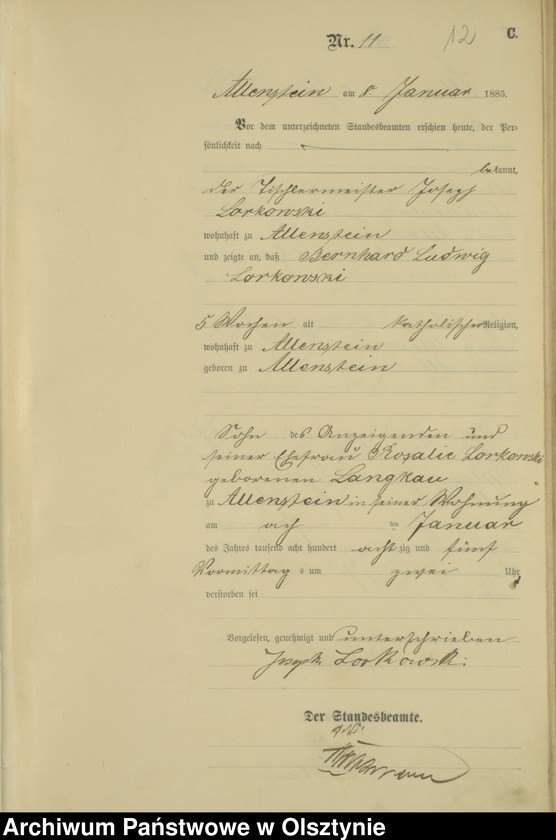 Nr. 11 12 C.
Allenstein am 8. Januar 1885.
Vor dem unterzeichneten Standesbeamten erschien heute, der Per-
sönlichkeit nach
bekannt,
der Tischlermeister Joseph
Lorkowski
wohnhaft zu Allenstein
und zeigte an, daß Bernhard Ludwig
Lorkowski
5 Wochen alt katholischer Religion,
wohnhaft zu Allenstein
geboren zu Allenstein
Sohn des Anzeigenden und
seiner Ehefrau Rosalie Lorkowski
geborenen Langkau
zu Allenstein in seiner Wohnung
am ach ten Januar
des Jahres tausend acht hundert achtzig und fünf
Vormittags um zwei Uhr
verstorben sei
Vorgelesen, genehmigt und unterschrieben
Joseph Lorkowski
Der Standesbeamte.
Archiwum Państwowe w Olsztynie